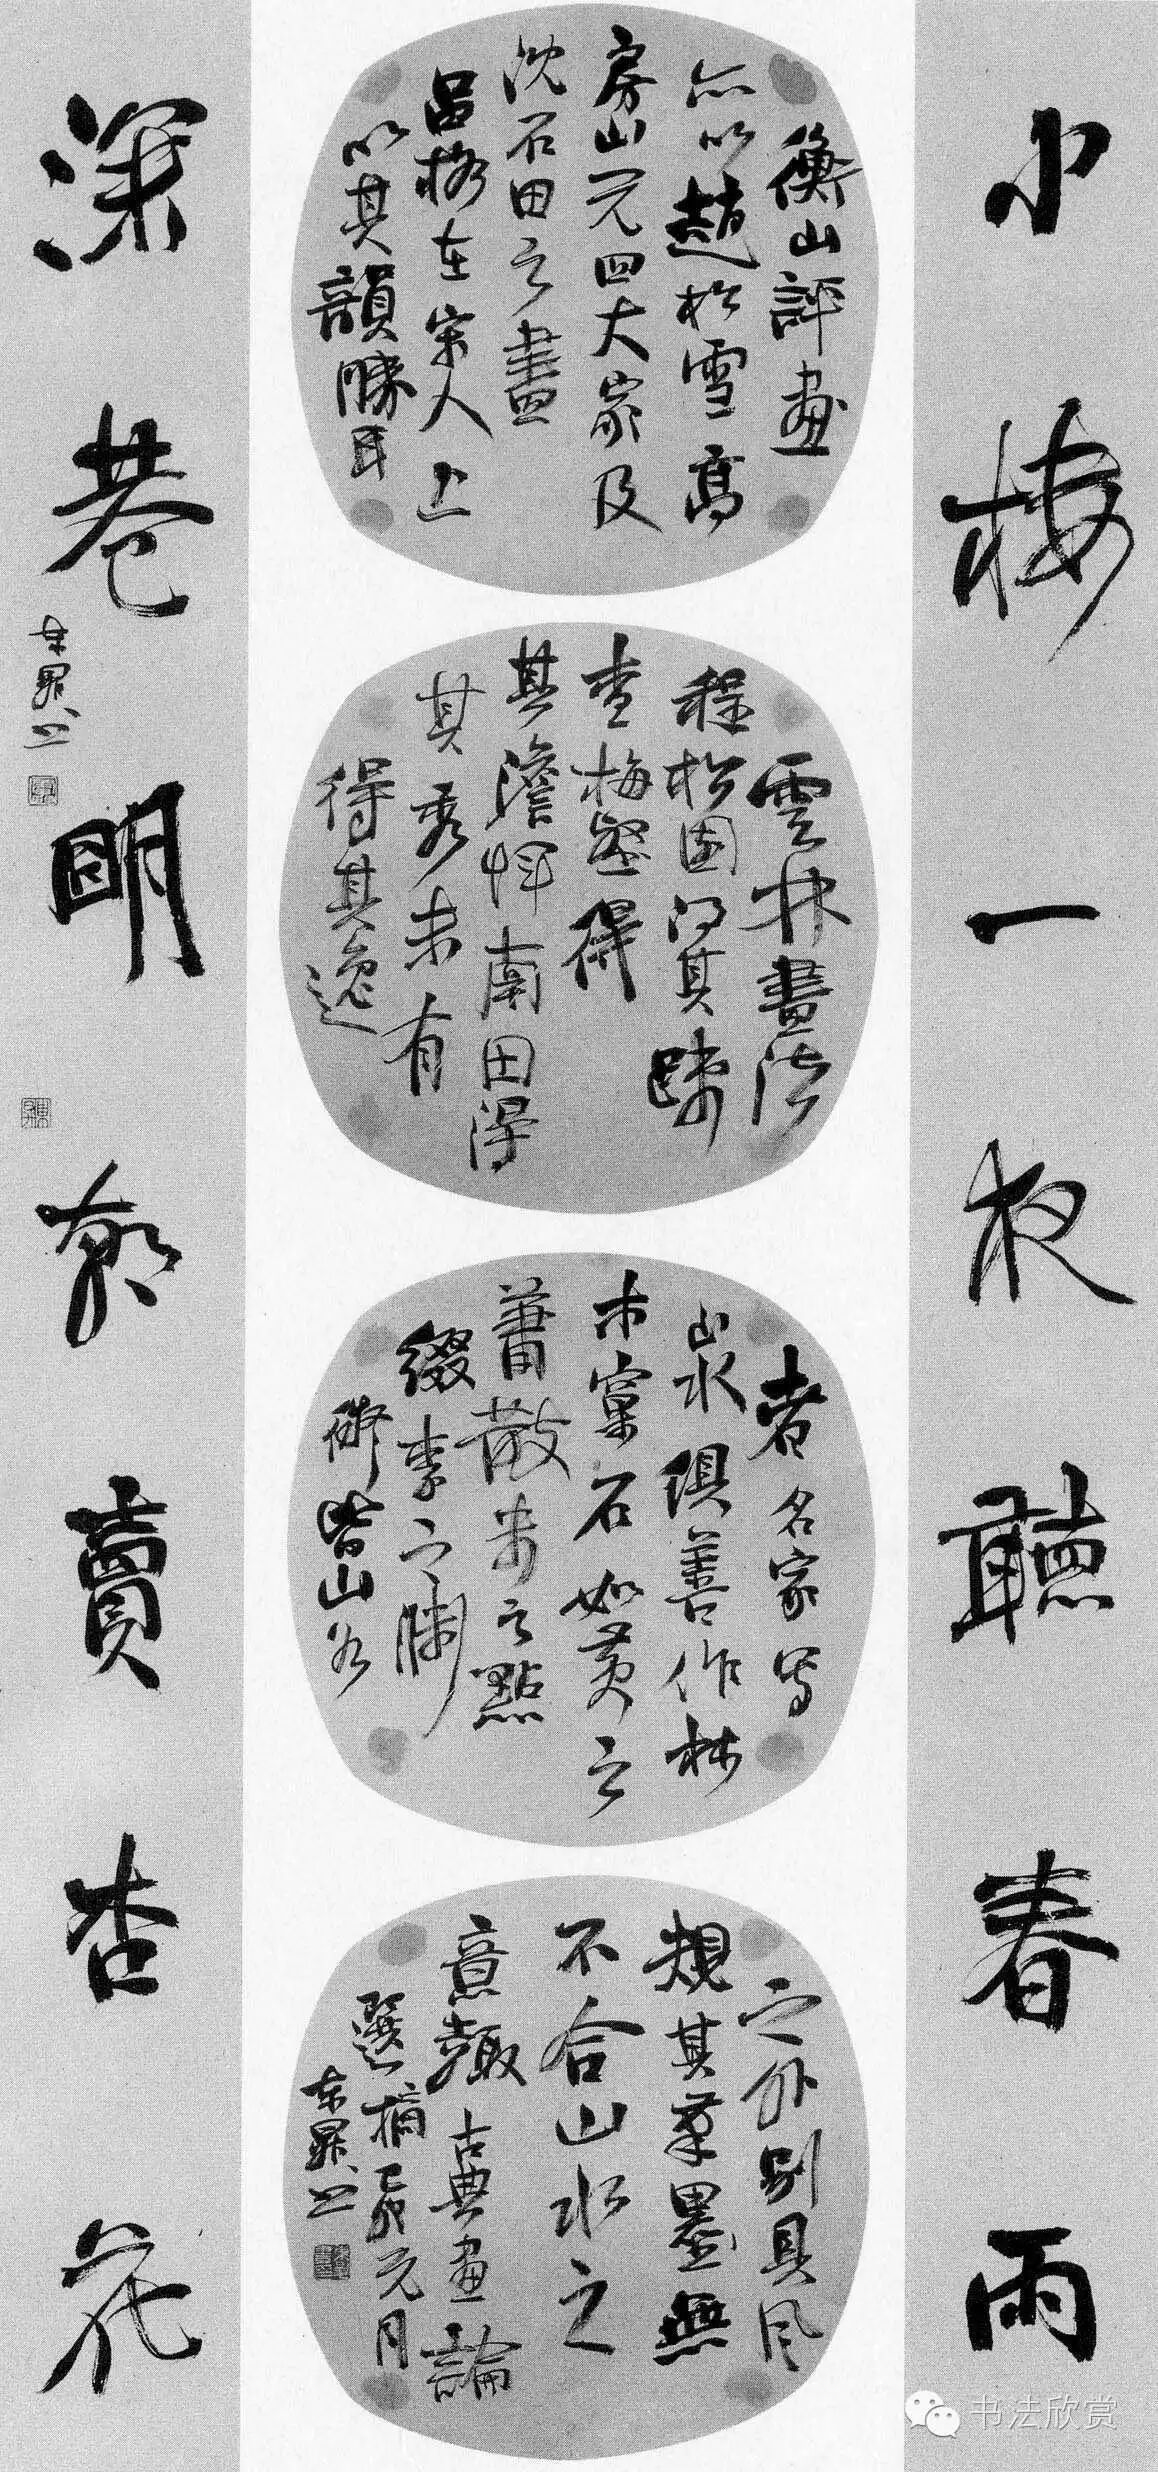 小楼一夜聽春雨
衡山評畫
亦以趙松雪高
房山元四大家及
沈石田之畫
品格在宋人上
以其韻勝耳
雲林畫法
程松圓得其
查梅壑得
其澹惲南田得
其秀未有
得其逸
者名家写
山水俱善作林
木窠石如黄之
蕭散朱之點
綴李之
皆山
之外別具风
規其筆墨無
不合山水之
意趣古典畫論
選摘元月
深巷明朝賣杏花
书法欣赏